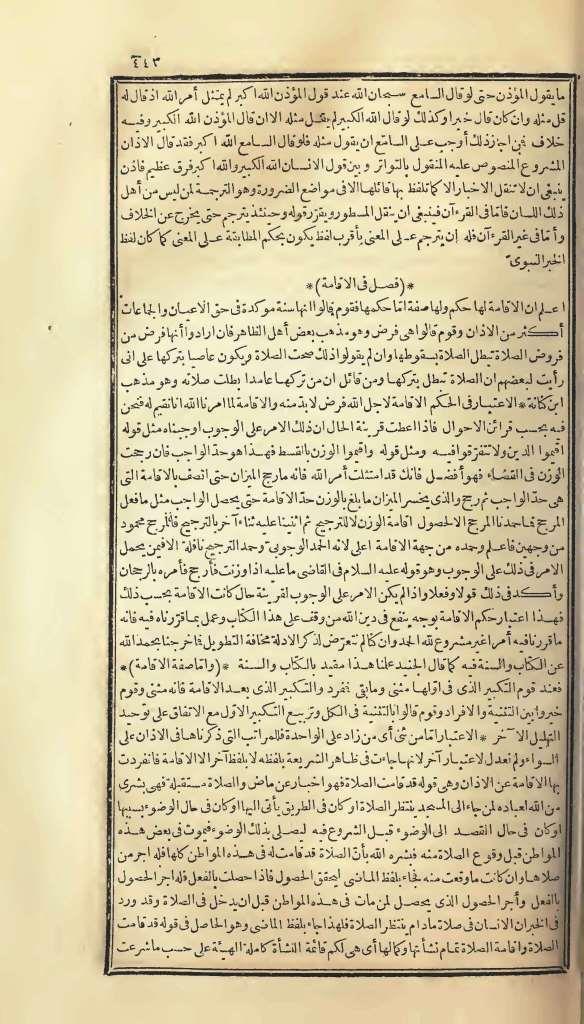 ٤٤٣
ما يقول المؤذن حتى لو قال السامع سبحان الله عند قول المؤذن الله اكبر لم يمتثل أمر الله اذ قال له
قل مثله وان كان قال خيرا وكذلك لو قال الله الكبير لم يقل مثله الا ان قال المؤذن الله الكبير وفيه
خلاف فمن اجاز ذلك أوجب على السامع ان يقول مثله فلو قال السامع الله اكبر فقد قال الاذان
المشروع المنصوص عليه المنقول بالتواتر وبين قول الانسان الله الكبير والله اكبر فرق عظيم فاذن
ينبغى ان لا تنقل الاخبار الا كما تلفظ بها قائلها الا فى مواضع الضرورة وهو الترجمة لمن ليس من أهل
ذلك اللسان فاما فى القرءآن فينبغى ان ينقل المسطور ويقرر قوله وحينئذ يترجم حتى يخرج عن الخلاف
وأما فى غير القرءآن فله ان يترجم على المعنى بأقرب لفظ يكون يحكم المطابقة على المعنى كما كان لفظ
الخبر النبوى
*(فصل فى الاقامة)*
اعلم ان الاقامة لها حكم ولها صفة اما حكمها فقوم قالوا انها سنة موكدة فى حق الاعيان والجماعات
أكثر من الاذان وقوم قالوا هى فرض وهو مذهب بعض أهل الظاهر فان ارادوا أنها فرض من
فروض الصلاة تبطل الصلاة بسقوطها وان لم يقولوا ذلك صحت الصلاة ويكون عاصيا بتركها على انى
رأيت لبعضهم ان الصلاة تبطل بتركها ومن قائل ان من تركها عامدا بطلت صلاته وهو مذهب
ابن كنانة * الاعتبار فى الحكم الاقامة لاجل الله فرض لا بد منه والاقامة لما امرنا الله ان نقيم له فنحن
فيه بحسب قرائن الاحوال فاذا اعطت قرينة الحال ان ذلك الامر على الوجوب اوجبناه مثل قوله
اقيموا الدين ولا تتفرقوا فيه ومثل قوله واقيموا الوزن بالقسط فهذا هو حد الواجب فان رجحت
الوزن فى القضاء فهو أفضل فانك قد امتثلت أمر الله فانه ما رجح الميزان حتى اتصف بالاقامة التى
هى حد الواجب ثم رجح والذى يخسر الميزان ما بلغ بالوزن حد الاقامة حتى يحصل الواجب مثل ما فعل
المرجح فما حمدنا المرجح الا لحصول اقامة الوزن لا للترجيح ثم اثنينا عليه ثناء آخر بالترجيح فالمرجح محمود
من وجهين فاعلم وحمده من جهة الاقامة اعلى لانه الحمد الوجوبى وحمد الترجيح نافلة الا فيمن يحمل
الامر فى ذلك على الوجوب وهو قوله عليه السلام فى القاضى ما عليه اذا وزنت فأرجح فأمره بالرجحان
وأكد فى ذلك قولا وفعلا واذ لم يكن الامر على الوجوب لقرينة حال كانت الاقامة بحسب ذلك
فهذا اعتبار حكم الاقامة بوجه ينفع فى دين الله من وقف على هذا الكتاب وعمل بما قررناه فيه فانه
ما قررنا فيه أمرا غير مشروع لله الحمد وان كنا لم نتعرض لذكر الادلة مخافة التطويل فما خرجنا بحمد الله
عن الكتاب والسنة فيه كما قال الجنيد علمنا هذا مقيد بالكتاب والسنة *(واما صفة الاقامة)*
فعند قوم التكبير الذى فى اولها مثنى وما بقى فمفرد والتكبير الذى بعد الاقامة فانه مثنى وقوم
خيروا بين التثنية والافراد وقوم قالوا بالتثنية فى الكل وتربيع التكبير الاول مع الاتفاق على توحيد
التهليل الآخر * الاعتبار اما من ثنى أى من زاد على الواحدة فللمراتب التى ذكرناها فى الاذان على
السواء ولم نعدل لاعتبار آخر لانها جاءت فى ظاهر الشريعة بلفظه لا بلفظ آخر الا الاقامة فانفردت
بها الاقامة عن الاذان وهى قوله قد قامت الصلاة فهو اخبار عن ماض والصلاة مستقبلة فهى بشرى
من الله لعباده لمن جاء الى المسجد ينتظر الصلاة او كان فى الطريق يأتى اليها او كان فى حال الوضوء بسببها
او كان فى حال القصد الى الوضوء قبل الشروع فيه ليصلى بذلك الوضوء فيموت فى بعض هذه
المواطن قبل وقوع الصلاة منه فبشره الله بأن الصلاة قد قامت له فى هذه المواطن كلها فله اجر من
صلاها وان كانت ما وقعت منه فجاء بلفظ الماضى ليحقق الحصول فاذا حصلت بالفعل فله اجر الحصول
بالفعل وأجر الحصول الذى يحصل لمن مات فى هذه المواطن قبل ان يدخل فى الصلاة وقد ورد
فى الخبر ان الانسان فى صلاة ما دام ينتظر الصلاة فلهذا جاء بلفظ الماضى وهو الحاصل فى قوله قد قامت
الصلاة واقامة الصلاة تمام نشأتها وكمالها أى هى لكم قائمة النشأة كاملة الهيئة على حسب ما شرعت